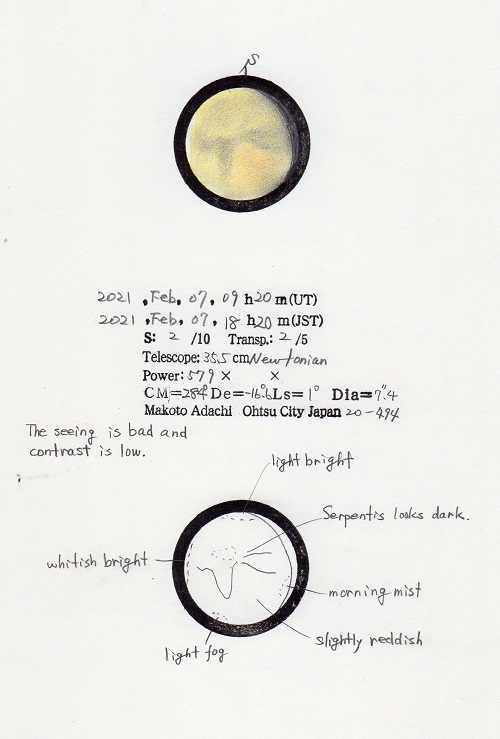 S
2021 , Feb, 07, 09 h 20 m (UT)
2021 , Feb, 07, 18 h 20 m (JST)
S: 2 /10 Transp.: 2 /5
Telescope: 35.5 cm Newtonian
Power: 579 × ×
CM=284° De=-16.6 Ls= 1° Dia=7".4
Makoto Adachi Ohtsu City Japan 20-494
The seeing is bad and
contrast is low.
light bright
Serpentis looks dark.
whitish bright
morning mist
slightly reddish
light fog